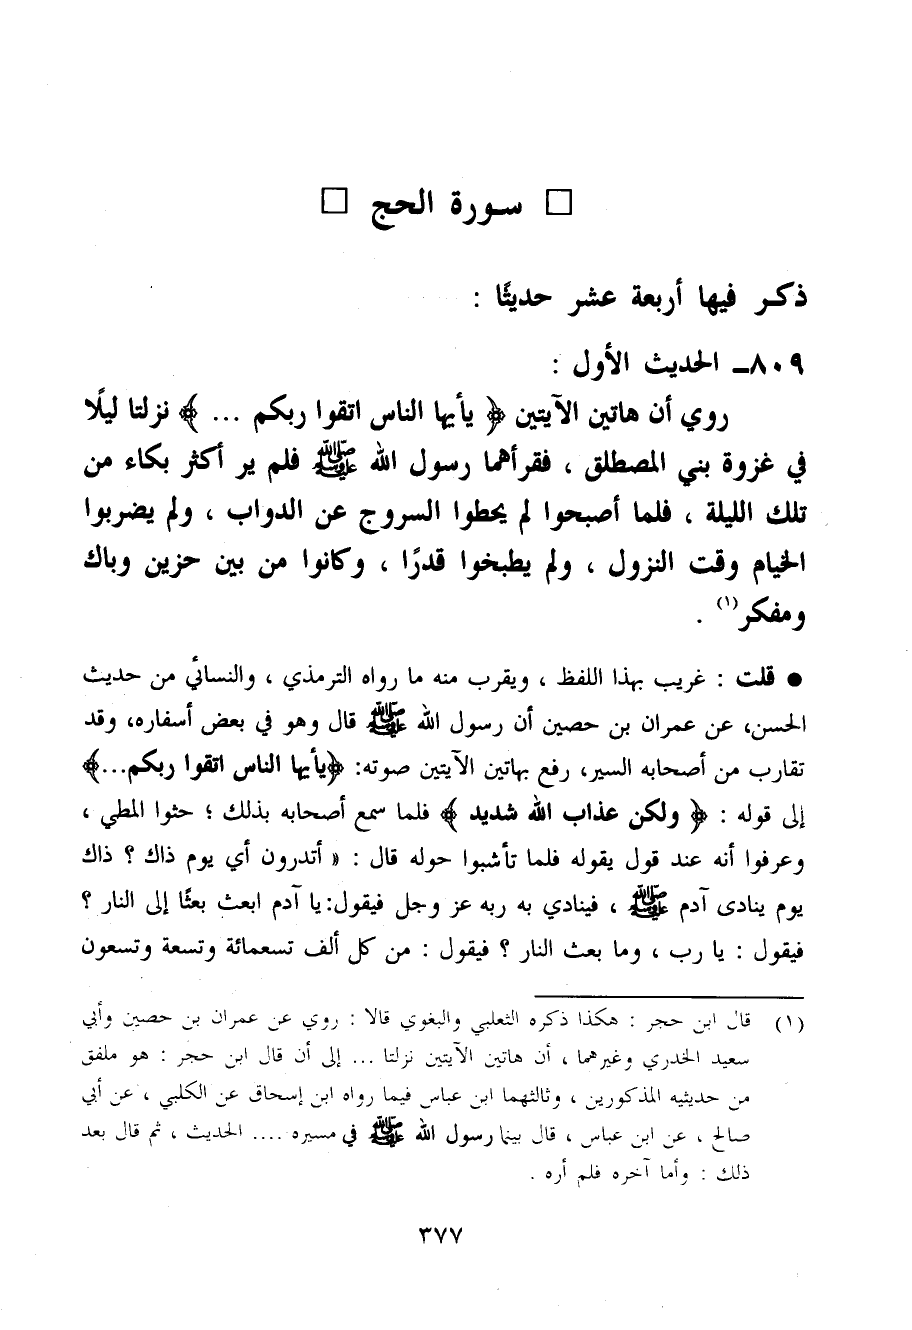 □ سورة الحج □
ذكر فيها أربعة عشر حديثًا :
٨٠٩ـ الحديث الأول :
روي أن هاتين الآيتين ﴿ يأيها الناس اتقوا ربكم ... ﴾ نزلتا ليلًا
في غزوة بني المصطلق ، فقرأهما رسول الله ﷺ فلم ير أكثر بكاء من
تلك الليلة ، فلما أصبحوا لم يحطوا السروج عن الدواب ، ولم يضربوا
الخيام وقت النزول ، ولم يطبخوا قدرًا ، وكانوا من بين حزين وباك
ومفكر(١) .
● قلت : غريب بهذا اللفظ ، ويقرب منه ما رواه الترمذي ، والنسائي من حديث
الحسن، عن عمران بن حصين أن رسول الله ﷺ قال وهو في بعض أسفاره، وقد
تقارب من أصحابه السير، رفع بهاتين الآيتين صوته: ﴿يأيها الناس اتقوا ربكم...﴾
إلى قوله : ﴿ ولكن عذاب الله شديد ﴾ فلما سمع أصحابه بذلك ؛ حثوا المطي ،
وعرفوا أنه عند قول يقوله فلما تأشبوا حوله قال : « أتدرون أي يوم ذاك ؟ ذاك
يوم ينادى آدم ﷺ ، فينادي به ربه عز وجل فيقول: يا آدم ابعث بعثًا إلى النار ؟
فيقول : يا رب ، وما بعث النار ؟ فيقول : من كل ألف تسعمائة وتسعة وتسعون
(١) قال ابن حجر : هكذا ذكره الثعلبي والبغوي قالا : روي عن عمران بن حصين وأبي
سعيد الخدري وغيرهما ، أن هاتين الآيتين نزلتا ... إلى أن قال ابن حجر : هو ملفق
من حديثيه المذكورين ، وثالثهما ابن عباس فيما رواه ابن إسحاق عن الكلبي ، عن أبي
صالح ، عن ابن عباس ، قال بينما رسول الله ﷺ في مسيره .... الحديث ، ثم قال بعد
ذلك : وأما آخره فلم أره .
٣٧٧